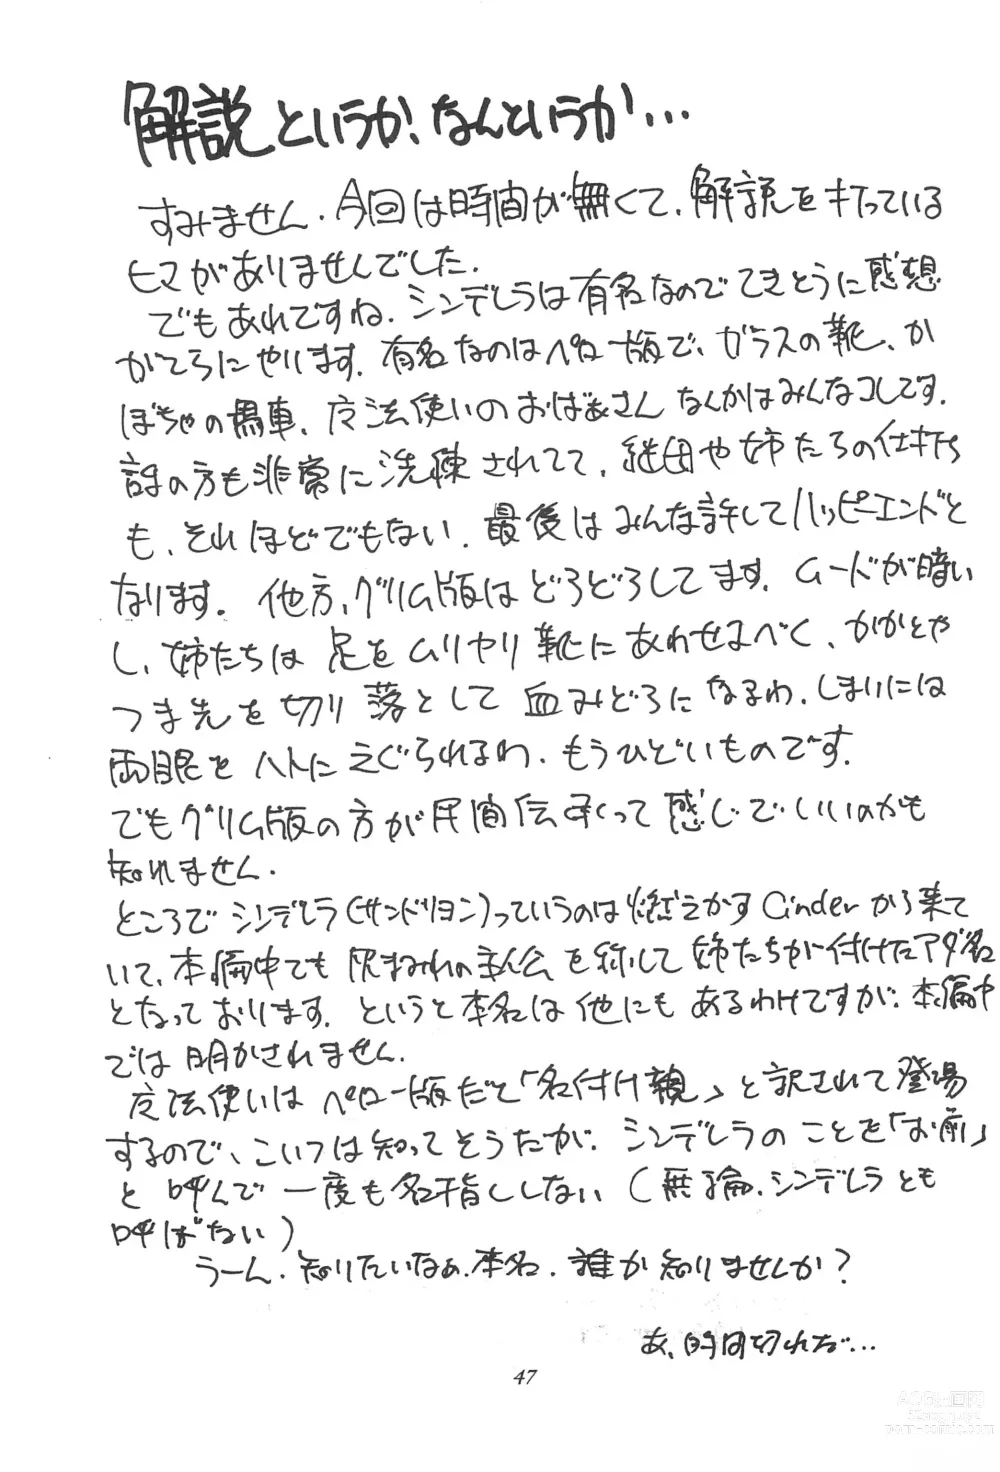 解説というか、なんというか…
すみません。今回は時間が無くて、解説を打っている
ヒマがありませんでした。
でもあれですね、シンデレラは有名なのでてきとうに感想
がてらにやります。有名なのはペロー版で、ガラスの靴、か
ぼちゃの馬車、魔法使いのおばぁさんなんかはみんなコレです。
話の方も非常に洗練されてて、継母や姉たちの仕打ち
も、それほどでもない。最後はみんな許してハッピーエンドと
なります。他方、グリム版はどろどろしてます。ムードが暗い
し、姉たちは足をムリヤリ靴にあわせるべく、かかとや
つま先を切り落として血みどろになるわ、しまいには
両眼をハトにえぐられるわ、もうひどいものです。
でもグリム版の方が民間伝承って感じでいいのかも
知れません。
ところでシンデレラ(サンドリヨン)っていうのは燃えかすCinderから来て
いて、本編中でも灰まみれの主人公を称して姉たちが付けたアダ名
となっております。というと本名は他にもあるわけですが、本編中
では明かされません。
魔法使いはペロー版だと「名付け親」と訳されて登場
するので、こいつは知ってそうだが、シンデレラのことを「お前」
と呼んで一度も名指ししない(無論、シンデレラとも
呼ばない)
うーん、知りたいなぁ、本名。誰か知りませんか?
あ、時間切れだ…
47